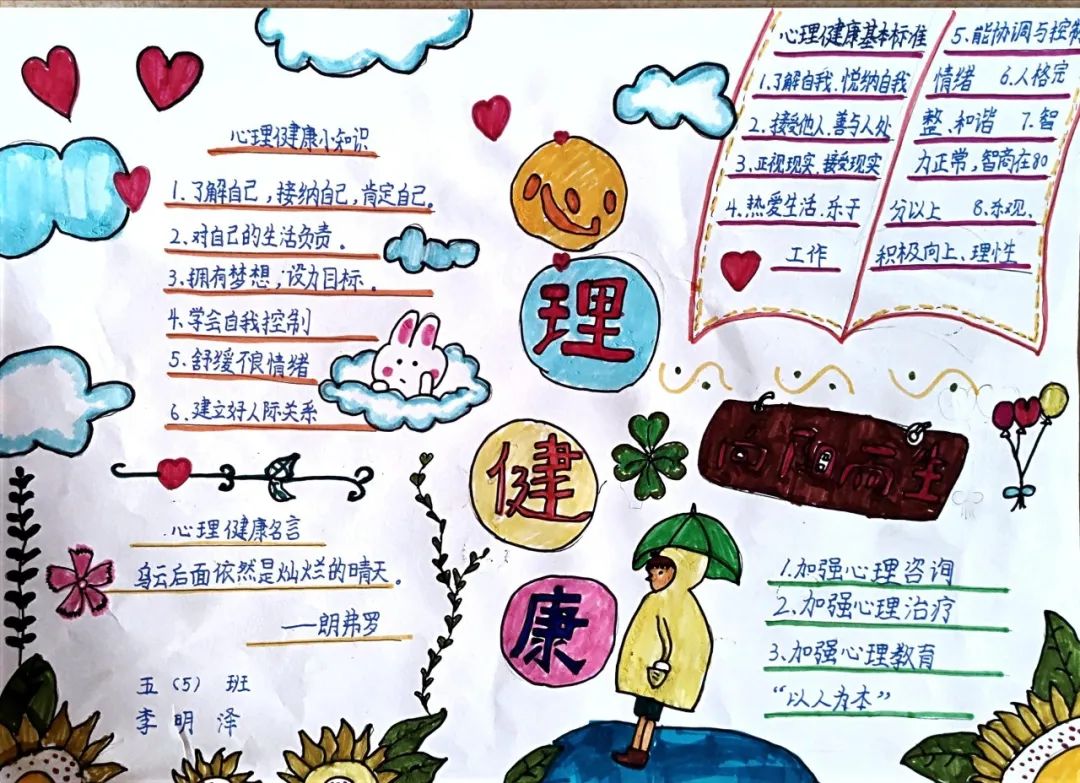 心理健康小知识
1.了解自己，接纳自己，肯定自己。
2.对自己的生活负责。
3.拥有梦想，设力目标。
4.学会自我控制
5.舒缓不良情绪
6.建立好人际关系
心理健康名言
乌云后面依然是灿烂的晴天。
——朗弗罗
五（5）班
李明泽
心
理
健
康
心理健康基本标准
1.了解自我.悦纳自我
2.接受他人.善与人处
3.正视现实.接受现实
4.热爱生活.乐于
工作
5.能协调与控制
情绪 6.人格完
整、和谐 7.智
力正常，智商在80
分以上 8.乐观、
积极向上、理性
向阳而生
1.加强心理咨询
2.加强心理治疗
3.加强心理教育
“以人为本”